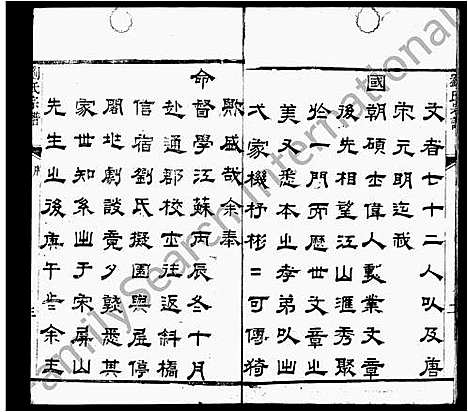 文者七十二人以及唐
宋元明迄我
國朝碩士偉人勳業文章
後先相望江山滙秀聚
於一門而歷世文章之
美又悉本之孝弟以出
大家機杼彬二可傳猗
歟盛哉余奉
命督學江蘇丙辰冬十月
赴通郡校士往返斜橋
信宿劉氏擬園與屋停
劇談竟夕悉其
家世知系出于宋屏山
先生之後庚午余主
劉氏宗譜
序
三
amilySearch International